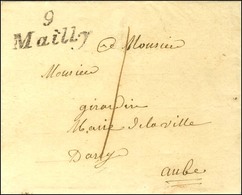 9
Mailly
A Monsieur
Monsieur
girardin
Maire de la ville
Darcy
aube